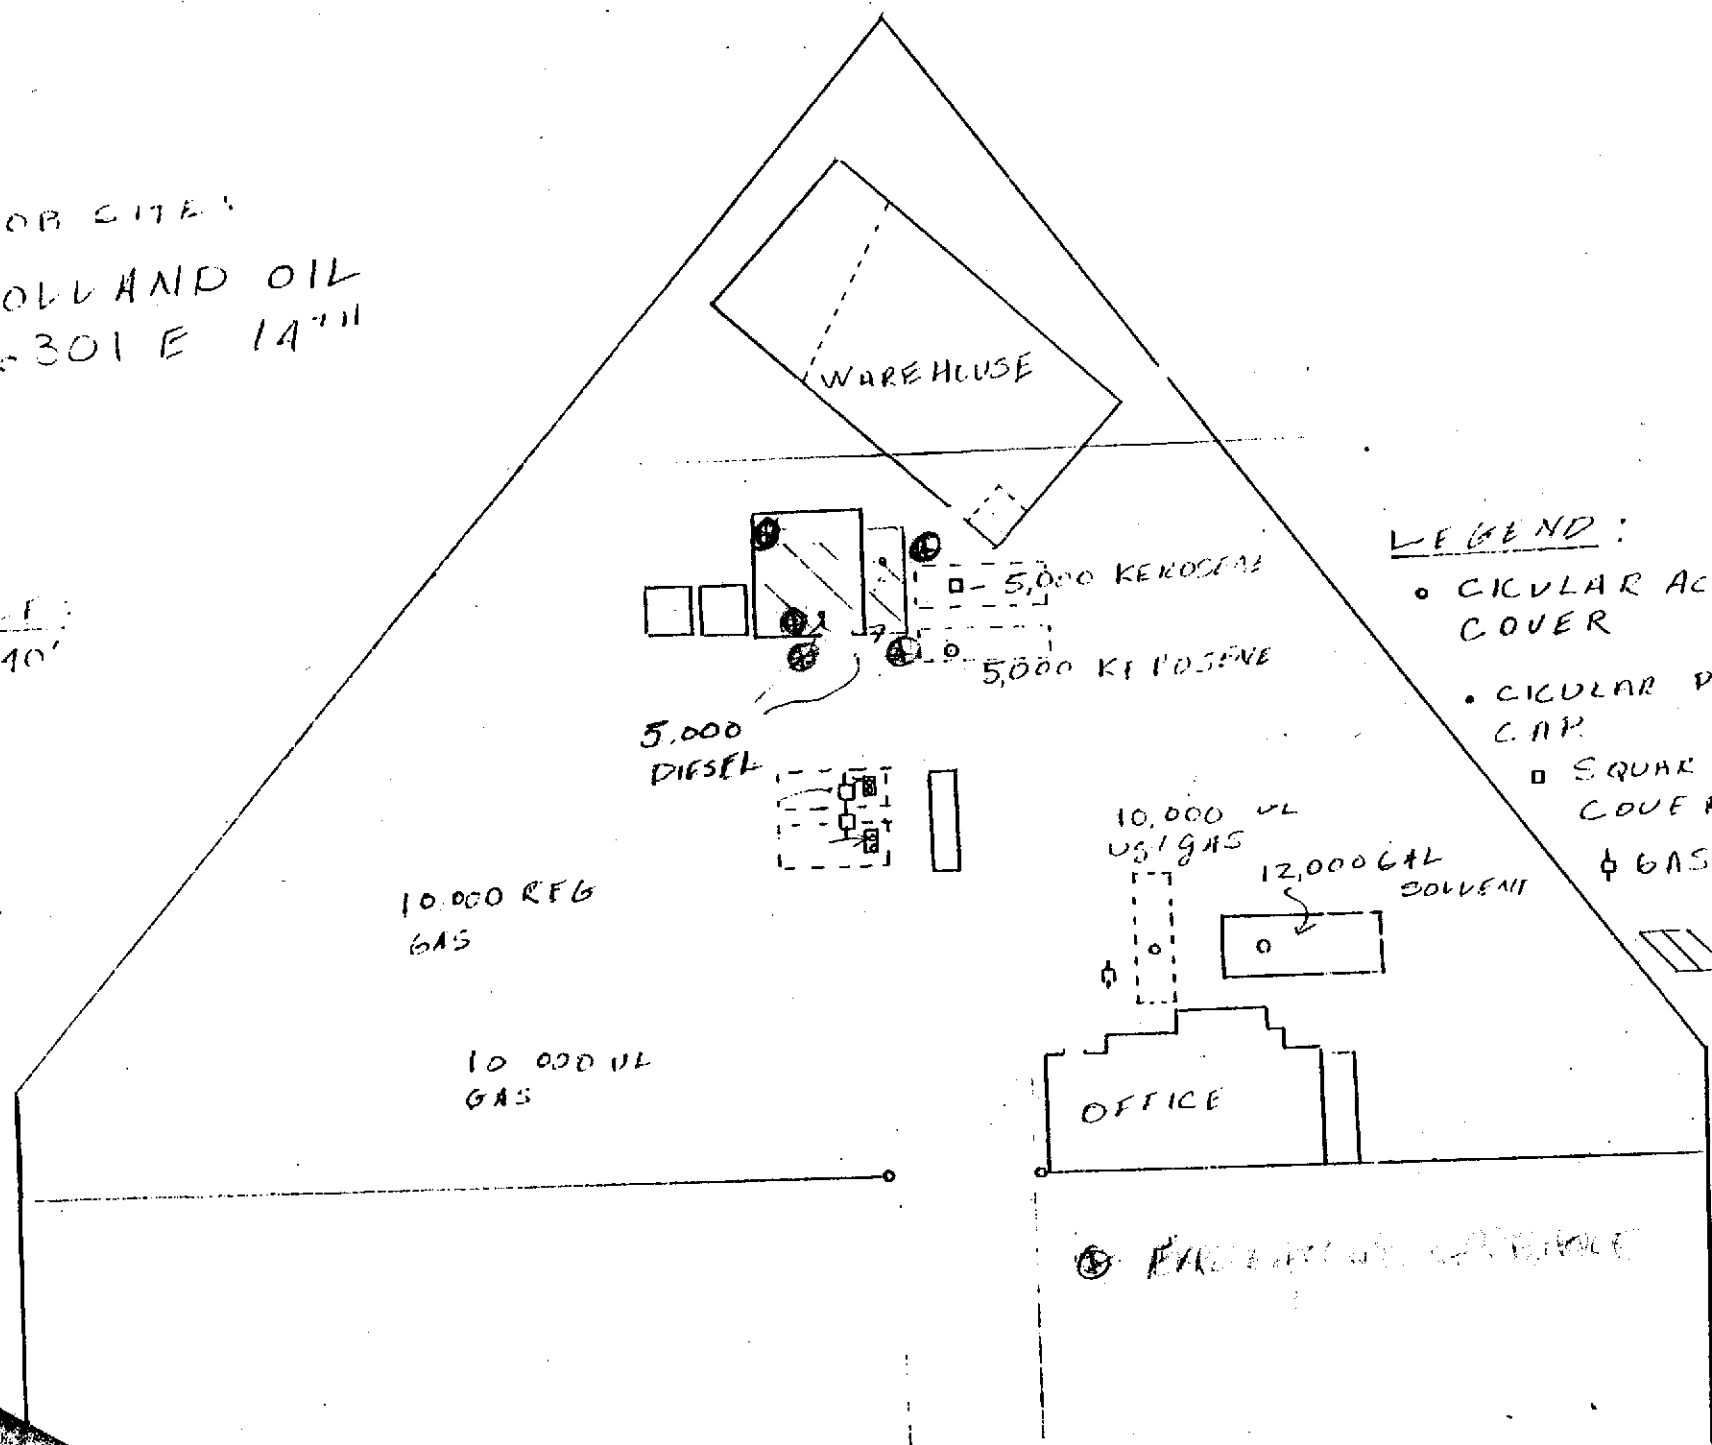 OB SITE:
OLLAND OIL
301 E 14TH
40'
WAREHOUSE
5,000 KEROSENE
5,000 KEROSENE
5,000
DIESEL
10,000 UL
GAS
12,000 GAL
SOLVENT
10,000 REG
GAS
10 000 UL
GAS
OFFICE
LEGEND:
CICULAR AC
COVER
CICULAR P
CAP
SQUAR
COVE
GAS